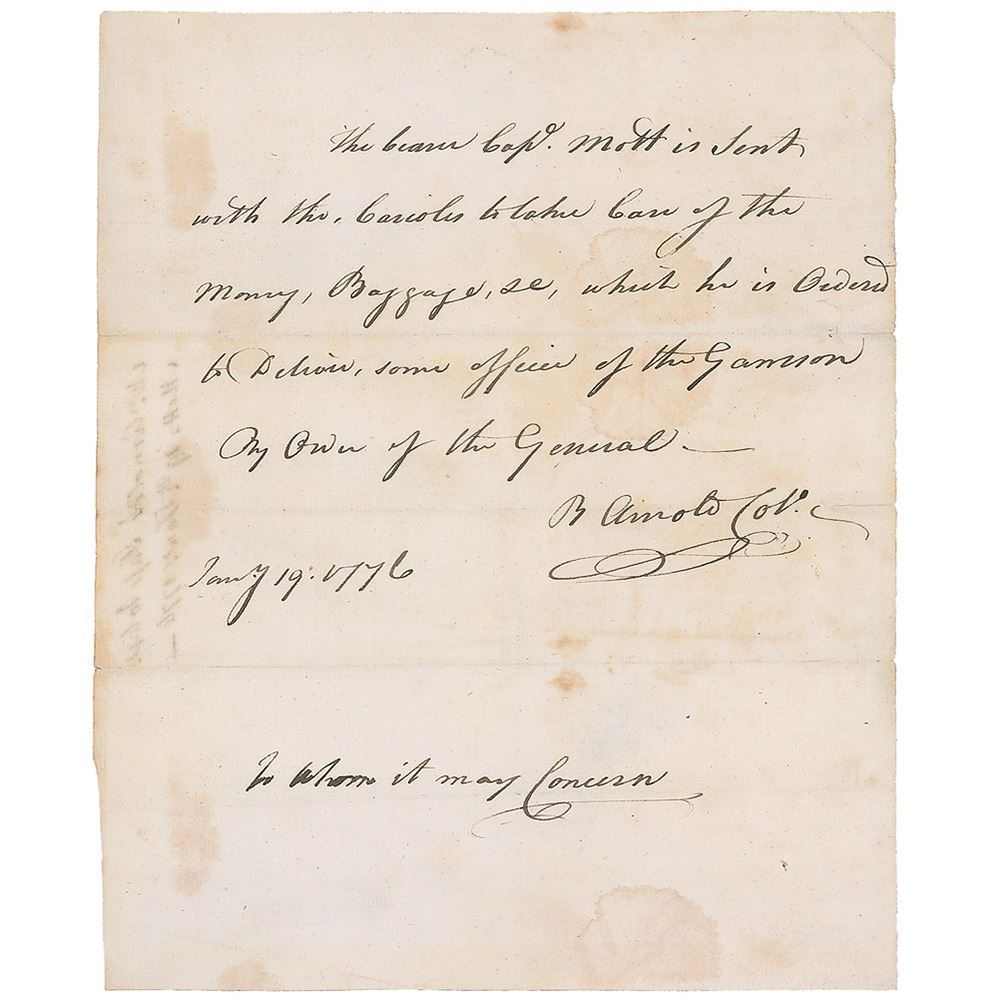 The bearer Capt. Mott is Sent
with the, Carioles to take Care of the
Money, Baggage, &c, which he is Orderd
to Deliver, some officer of the Garrison
By Order of the General —
B Arnold Colo.
Jany 19. 1776
To whom it may Concern